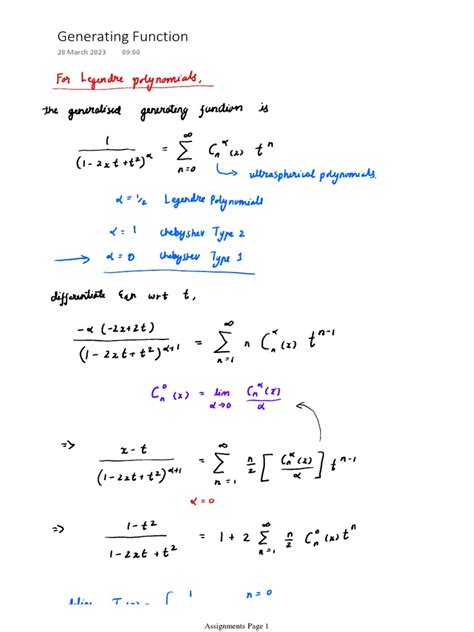 Generating Function
28 March 2023 09:00
For Legendre polynomials,
the generalised generating function is
1/(1-2xt+t²)^α = Σ_{n=0}^{∞} C_n^α(x) t^n
↳ ultraspherical polynomials.
α = 1/2 Legendre Polynomials
α = 1 Chebyshev Type 2
→ α = 0 Chebyshev Type 1
differentiate Eqn wrt t,
-α(-2x+2t)/(1-2xt+t²)^{α+1} = Σ_{n=1}^{∞} n C_n^α(x) t^{n-1}
C_n^0(x) = lim_{α→0} C_n^α(x)/α
=> x-t/(1-2xt+t²)^{α+1} = Σ_{n=1}^{∞} n/2 [C_n^α(x)/α] t^{n-1}
α=0
=> 1-t²/1-2xt+t² = 1 + 2 Σ_{n=1}^{∞} n/2 C_n^0(x) t^n
1 n=0
Assignments Page 1